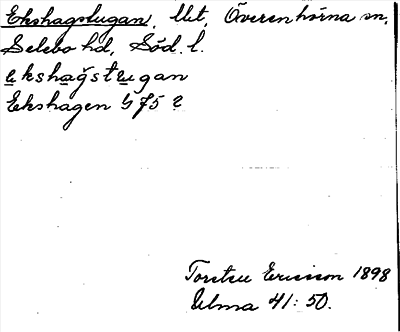 Ekshagslugan, llit, Överenhörna sn,
Selebo hd, Söd. l.
ekshagstugan
Ekshagen G 75 2
Torsten Ericsson 1898
Ulma 41: 50.